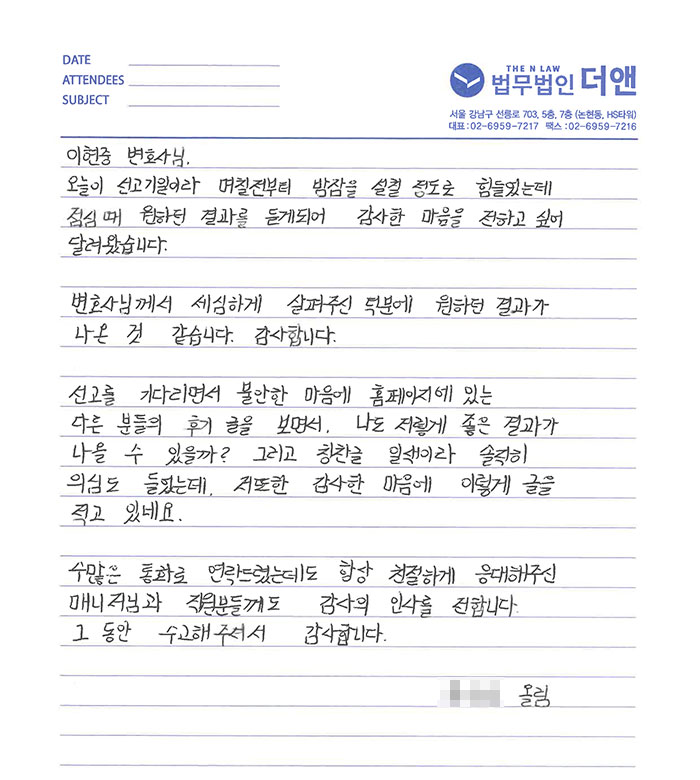 DATE
ATTENDEES
SUBJECT
THE N LAW
법무법인 더앤
서울 강남구 선릉로 703, 5층, 7층 (논현동, HS타워)
대표 : 02-6959-7217 팩스 : 02-6959-7216
이현중 변호사님.
오늘이 선고기일이라 며칠전부터 밤잠을 설칠 정도로 힘들었는데
점심 때 원하던 결과를 듣게되어 감사한 마음을 전하고 싶어
달려왔습니다.
변호사님께서 세심하게 살펴주신 덕분에 원하던 결과가
나온 것 같습니다. 감사합니다.
선고를 기다리면서 불안한 마음에 홈페이지에 있는
다른 분들의 후기 글을 보면서, 나도 저렇게 좋은 결과가
나올 수 있을까? 그리고 칭찬글 일색이라 솔직히
의심도 들었는데, 저또한 감사한 마음에 이렇게 글을
적고 있네요.
수많은 통화로 연락드렸는데도 항상 친절하게 응대해주신
매니저님과 직원분들께도 감사의 인사를 전합니다.
그 동안 수고해주셔서 감사합니다.
올림